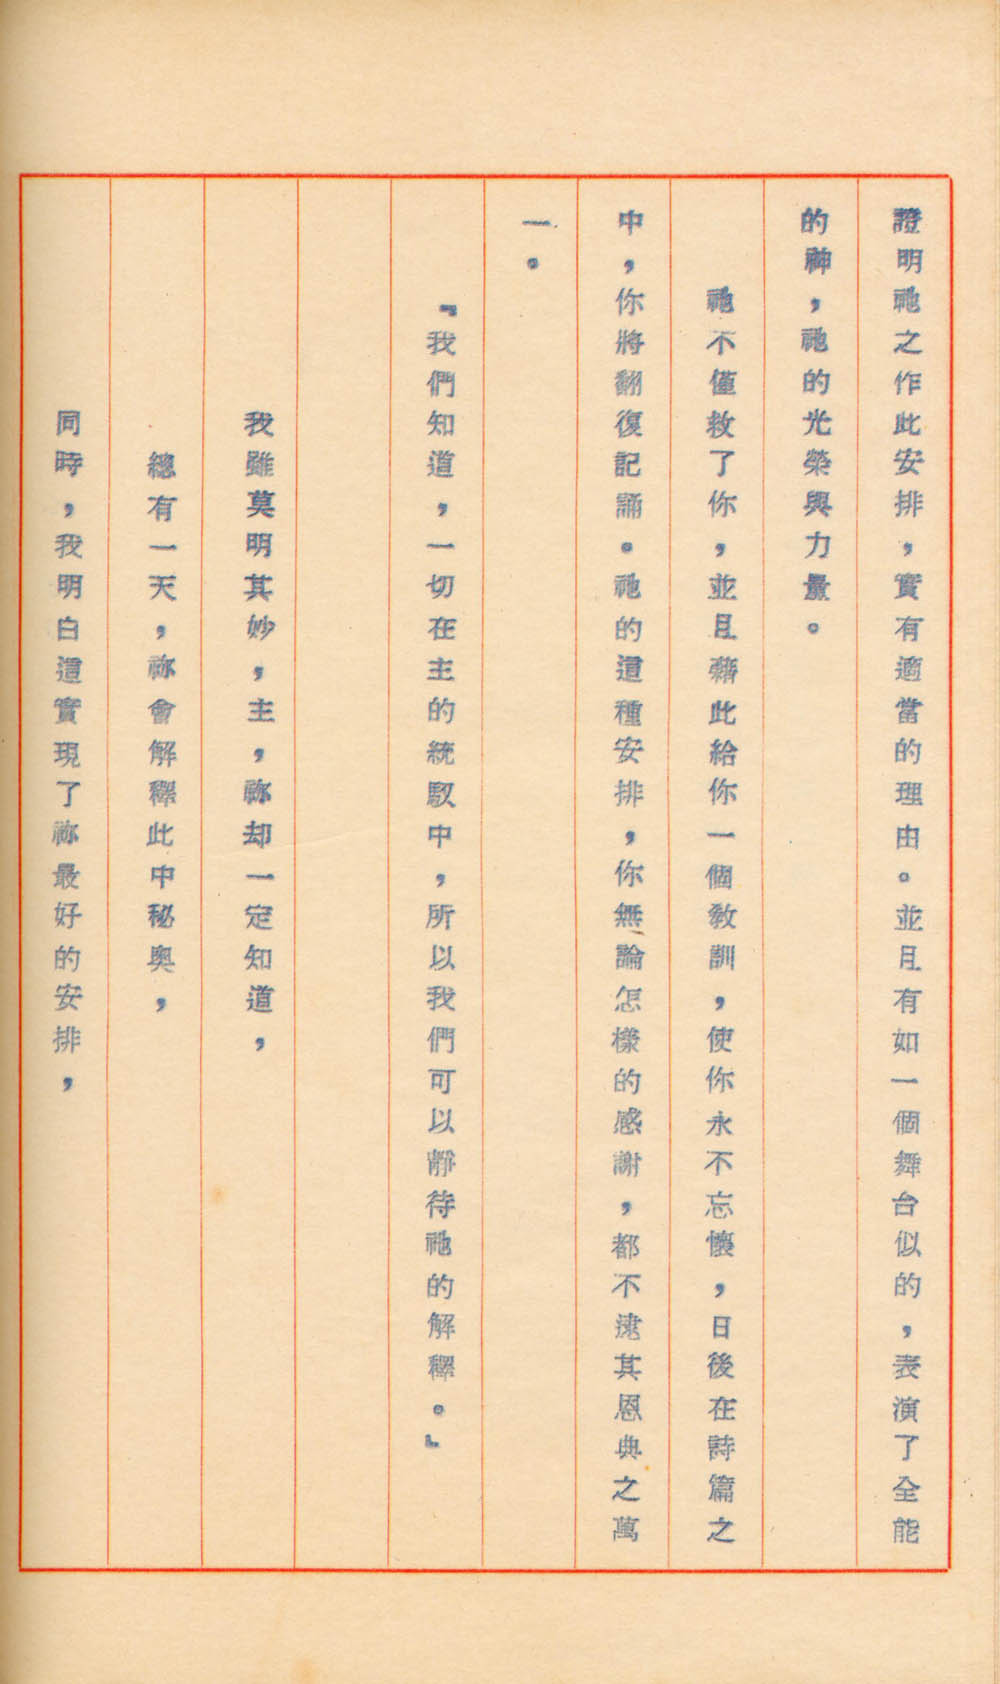 證明祂之作此安排，實有適當的理由。並且有如一個舞台似的，表演了全能
的神，祂的光榮與力量。
祂不僅救了你，並且藉此給你一個敎訓，使你永不忘懷，日後在詩篇之
中，你將翻復記誦。祂的這種安排，你無論怎樣的感謝，都不逮其恩典之萬
一。
『我們知道，一切在主的統馭中，所以我們可以靜待祂的解釋。』
我雖莫明其妙，主，祢却一定知道，
總有一天，祢會解釋此中秘奧，
同時，我明白這實現了祢最好的安排，